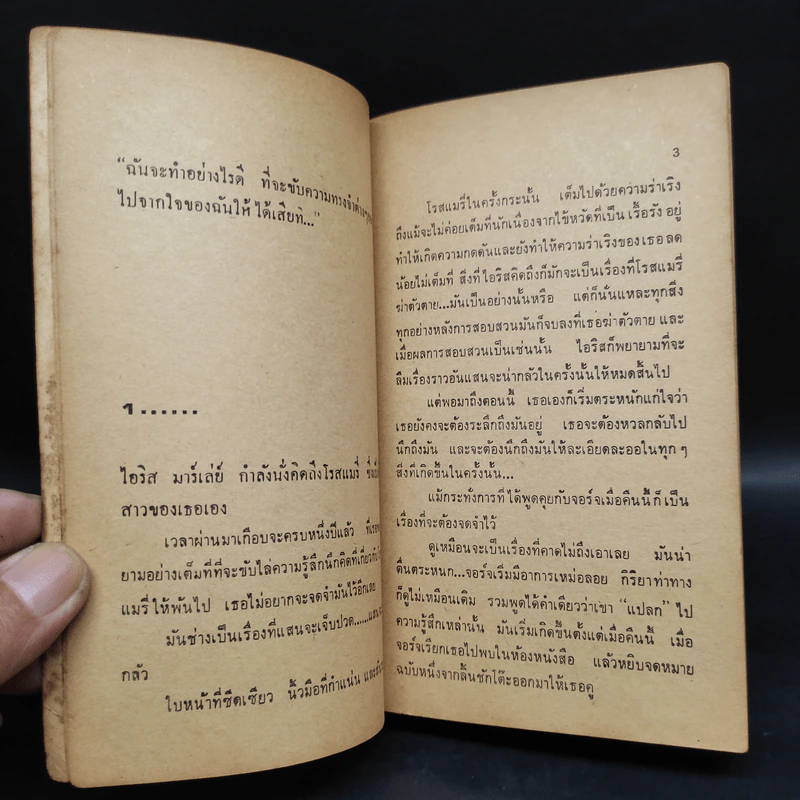 “ฉันจะทำอย่างไรดี ที่จะขับความทรงจำต่างๆ
ไปจากใจของฉันให้ได้เสียที...”
1......
ไอริส มาร์เล่ย์ กำลังนั่งคิดถึงโรสแมรี่
สาวของเธอเอง
เวลาผ่านมาเกือบจะครบหนึ่งปีแล้ว
ยามอย่างเต็มที่ที่จะขับไล่ความรู้สึกนึกคิดที่เกี่ยวกับ
แมรี่ให้พ้นไป เธอไม่อยากจะจดจำมันไว้อีกเลย
มันช่างเป็นเรื่องที่แสนจะเจ็บปวด......
กลัว
ใบหน้าที่ซีดเซียว นิ้วมือที่กำแน่น และ
3
โรสแมรี่ในครั้งกระนั้น เต็มไปด้วยความร่าเริง
ถึงแม้จะไม่ค่อยเต็มที่นักเนื่องจากไข้หวัดที่เป็นเรื้อรังอยู่
ทำให้เกิดความกดดันและยังทำให้ความร่าเริงของเธอลด
น้อยไม่เต็มที่ สิ่งที่ไอริสคิดถึงก็มักจะเป็นเรื่องที่โรสแมรี่
ฆ่าตัวตาย...มันเป็นอย่างนั้นหรือ แต่ก็นั่นแหละทุกสิ่ง
ทุกอย่างหลังการสอบสวนมันก็จบลงที่เธอฆ่าตัวตาย และ
เมื่อผลการสอบสวนเป็นเช่นนั้น ไอริสก็พยายามที่จะ
ลืมเรื่องราวอันแสนจะน่ากลัวในครั้งนั้นให้หมดสิ้นไป
แต่พอมาถึงตอนนี้ เธอเองก็เริ่มตระหนักแก่ใจว่า
เธอยังคงจะต้องระลึกถึงมันอยู่ เธอจะต้องหวลกลับไป
นึกถึงมัน และจะต้องนึกถึงมันให้ละเอียดละออในทุก ๆ
สิ่งที่เกิดขึ้นในครั้งนั้น...
แม้กระทั่งการที่ได้พูดคุยกับจอร์จเมื่อคืนนี้ก็เป็น
เรื่องที่จะต้องจดจำไว้
ดูเหมือนจะเป็นเรื่องที่คาดไม่ถึงเอาเลย มันน่า
ตื่นตระหนก...จอร์จเริ่มมีอาการเหม่อลอย กิริยาท่าทาง
ก็ดูไม่เหมือนเดิม รวมพูดได้คำเดียวว่าเขา “แปลก” ไป
ความรู้สึกเหล่านั้น มันเริ่มเกิดขึ้นตั้งแต่เมื่อคืนนี้ เมื่อ
จอร์จเรียกเธอไปพบในห้องหนังสือ แล้วหยิบจดหมาย
ฉบับหนึ่งจากลิ้นชักโต๊ะออกมาให้เธอดู